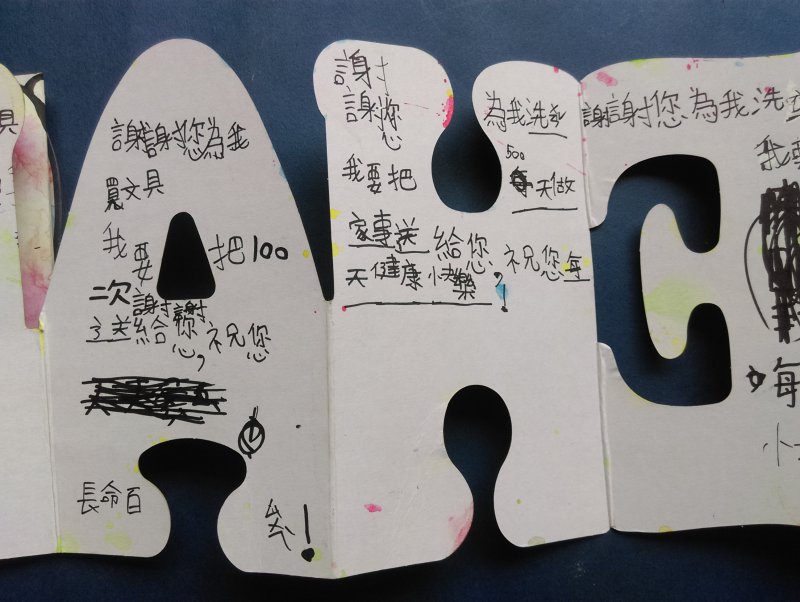 具
謝謝您為我
買文具
我要把100
二次謝謝
送給您,祝您
長命百
歲!
謝
謝您
為我洗
我要把
500
每天做
家事送給您,祝您每
天健康快樂!
謝謝您為我洗
我要
每
小